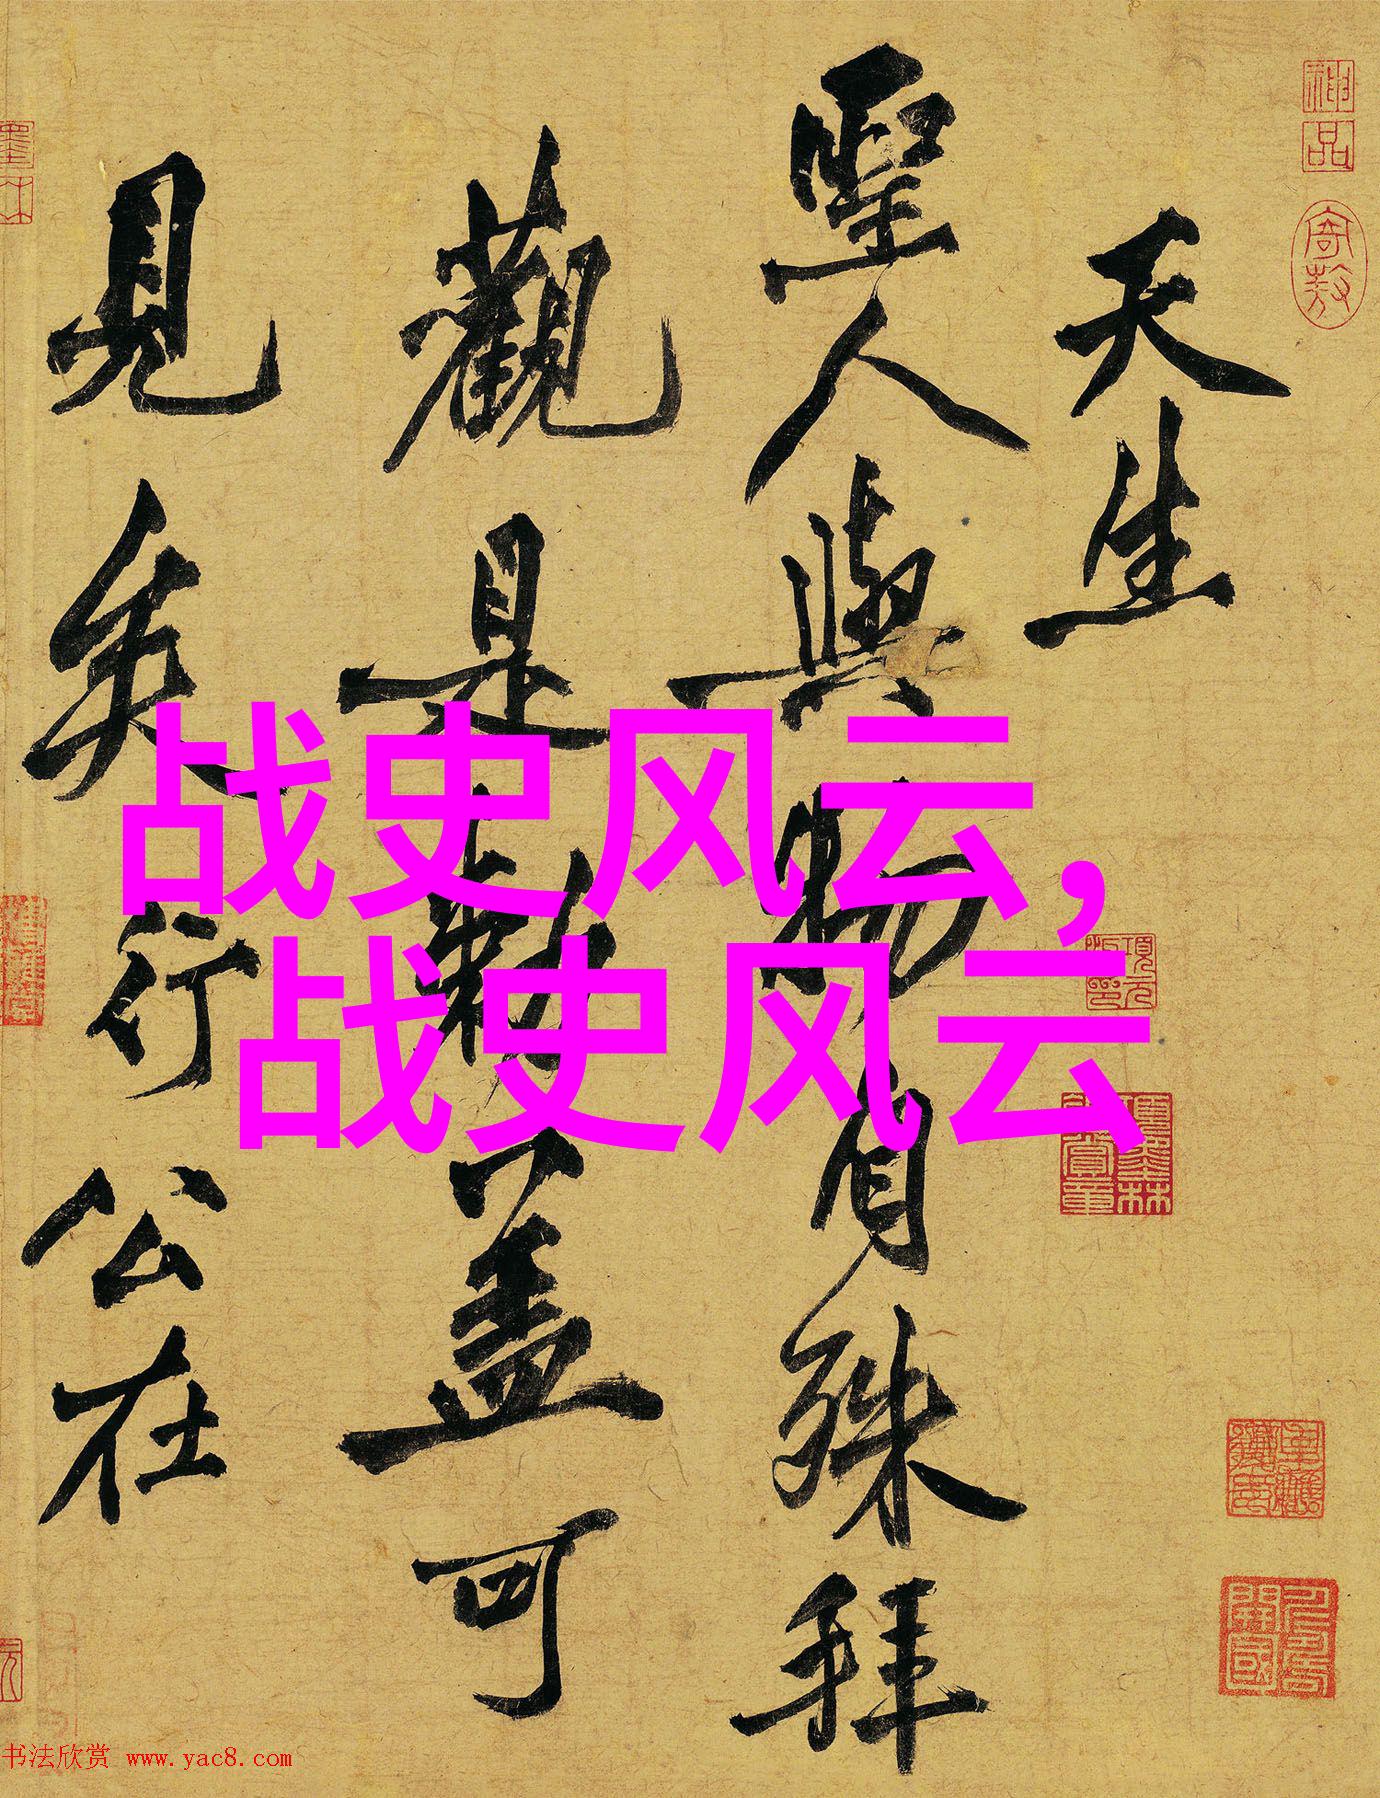 天生
聖人與物自殊拜
觀是勑蓋可
見矣行公在
战史风云,
战史风云
神品
書法欣赏 www.yac8.com